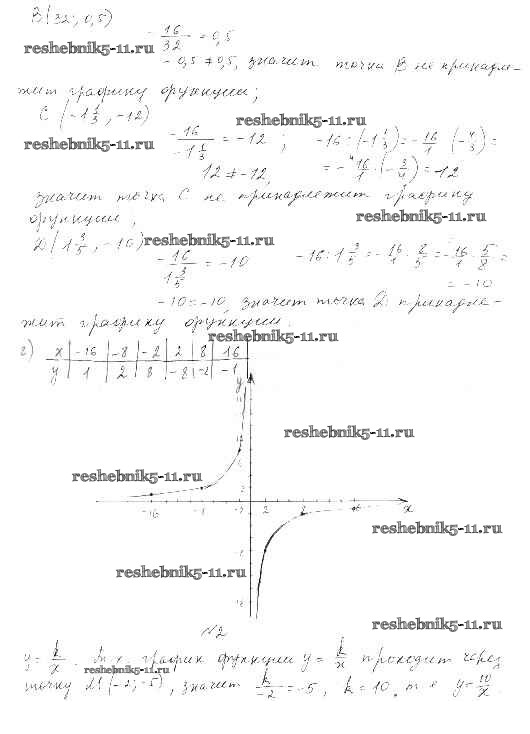 B(32; 0,5)
-16/32 = 0,5
reshebnik5-11.ru
-0,5 ≠ 0,5, значит точка B не принадле-
жит графику функции;
C (-1 1/3, -12)
reshebnik5-11.ru
reshebnik5-11.ru
-16/(-1 1/3) = -12 ; -16 : (-1 1/3) = -16/1 : (-4/3) =
12 ≠ -12, = -16/1 · (-3/4) = 12
значит точка C не принадлежит графику
reshebnik5-11.ru
функции,
D(1 3/5, -10)
reshebnik5-11.ru
-16/(1 3/5) = -10 -16 : 1 3/5 = -16/1 : 8/5 = -16/1 · 5/8 =
= -10
-10 = -10, значит точка D принадле-
жит графику функции.
reshebnik5-11.ru
г) x | -16 | -8 | -2 | 2 | 8 | 16
y | 1 | 2 | 8 | -8 | -2 | -1
y
reshebnik5-11.ru
reshebnik5-11.ru
-16 2 8 x
reshebnik5-11.ru
reshebnik5-11.ru
№2
reshebnik5-11.ru
y = k/x . график функции y = k/x проходит через
reshebnik5-11.ru
точку (-2; -5), значит k/-2 = -5, k = 10, т.е y = 10/x.